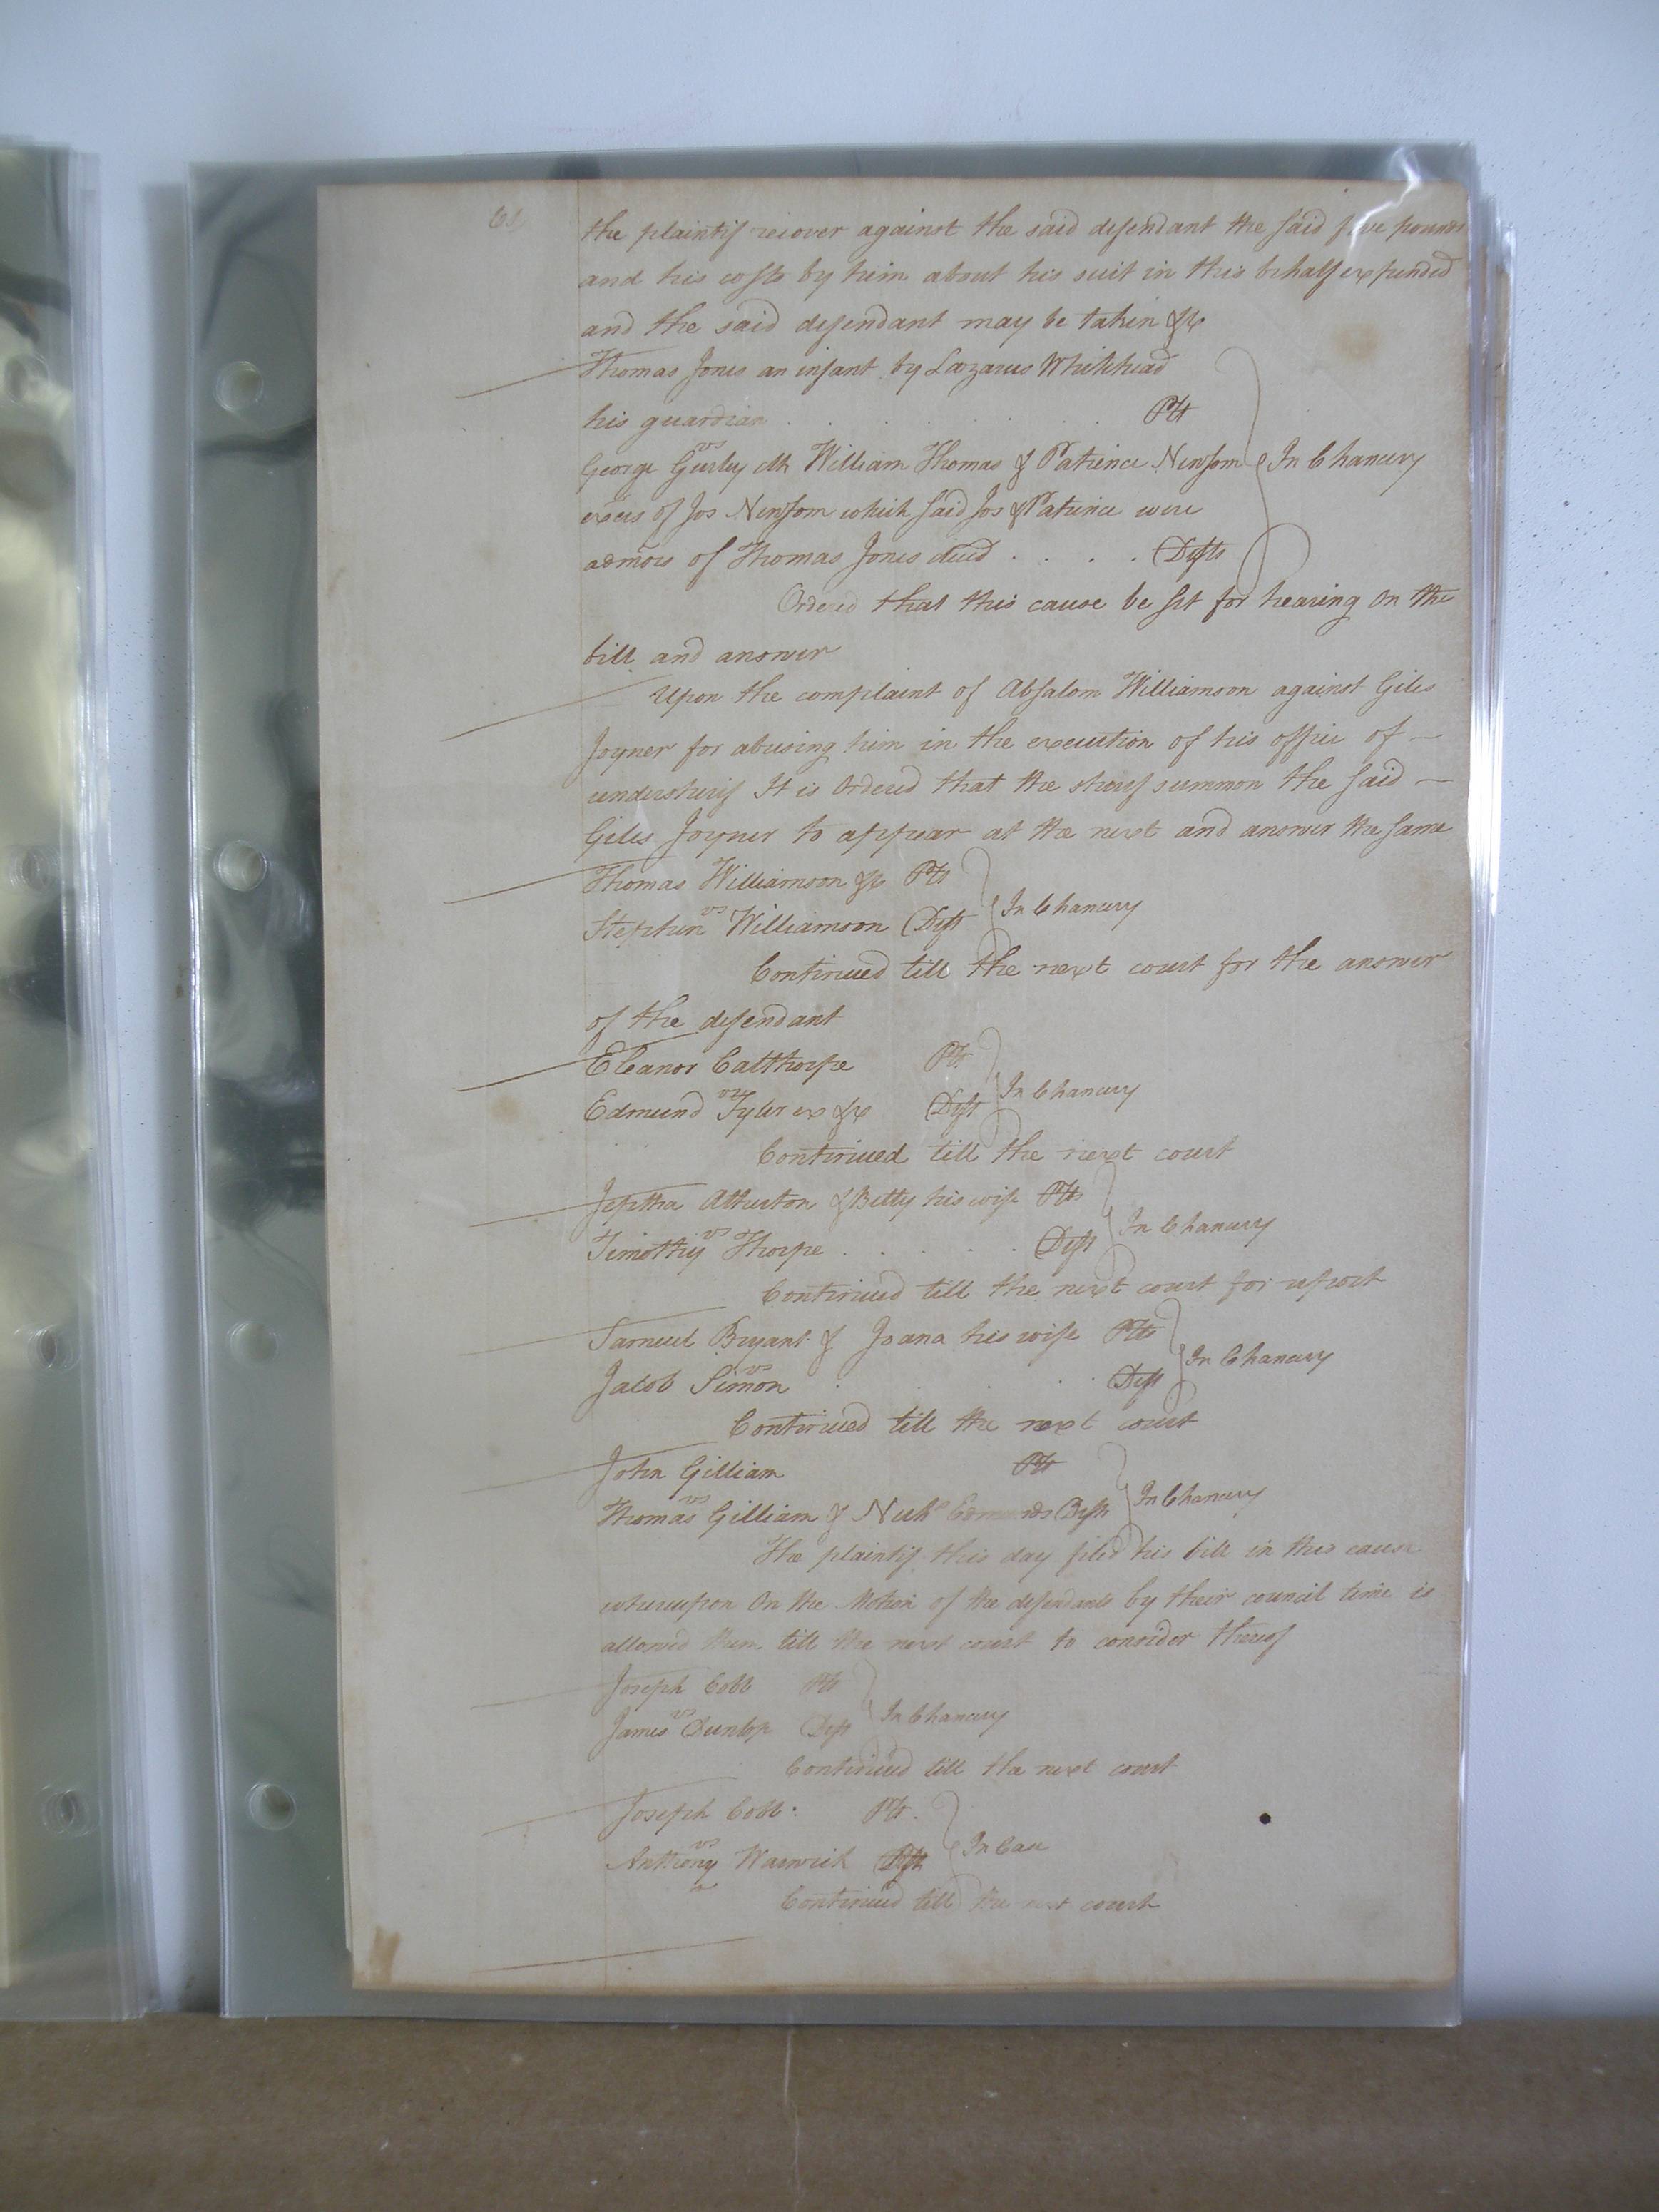 the plaintif recover against the said defendant the said five pounds
and his costs by him about his suit in this behalf expended
and the said defendant may be taken &c
Thomas Jones an infant by Lazarus Whitehead
his guardian . . . . . . Plt
vs
George Gurley clk William Thomas & Patience Newsom
In Chancery
exōrs of Jos Newsom which said Jos & Patience were
admōrs of Thomas Jones decd . . . . Defts
Ordered that this cause be set for hearing on the
bill and answer
Upon the complaint of Absalom Williamson against Giles
Joyner for abusing him in the execution of his office of —
undersherif It is Ordered that the sherif summon the said —
Giles Joyner to appear at the next and answer the same
Thomas Williamson &c Plts
vs
In Chancery
Stephen Williamson Deft
Continued till the next court for the answer
of the defendant
Eleanor Calthorpe Plt.
vs
In Chancery
Edmund Tyler ex &c Deft
Continued till the next court
Jeptha Atherton & Betty his wife Plts
vs
In Chancery
Timothy Thorpe . . . . . Deft
Continued till the next court for report
Samuel Bryant & Joana his wife Plts
vs
In Chancery
Jacob Simon . . . . Deft
Continued till the next court
John Gilliam Plt
vs
In Chancery
Thomas Gilliam & Nichˢ Edmunds Defts
The plaintif this day filed his bill in this cause
whereupon On the Motion of the defendants by their council time is
allowed them till the next court to consider thereof
Joseph Cobb Plt
vs
In Chancery
James Dunlop Deft
Continued till the next court
Joseph Cobb : Plt.
vs
In Case
Anthony Warwick Deft
Continued till the next court